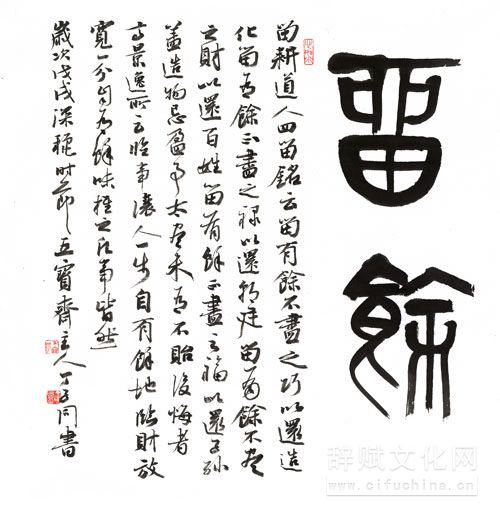 留餘
留耕道人四留銘云留有餘不盡之巧以還造
化留有餘不盡之祿以還朝廷留有餘不尽
之財以還百姓留有餘不盡之福以還子孫
蓋造物忌盈事太尽未有不貽後悔者
高景逸所云臨事讓人一步自有餘地臨財放
寬一分自有餘味推之凡事皆然
歲次戊戌深穐時節五寶齋主人丁子同書
辞赋文化网
www.cifuchina.cn